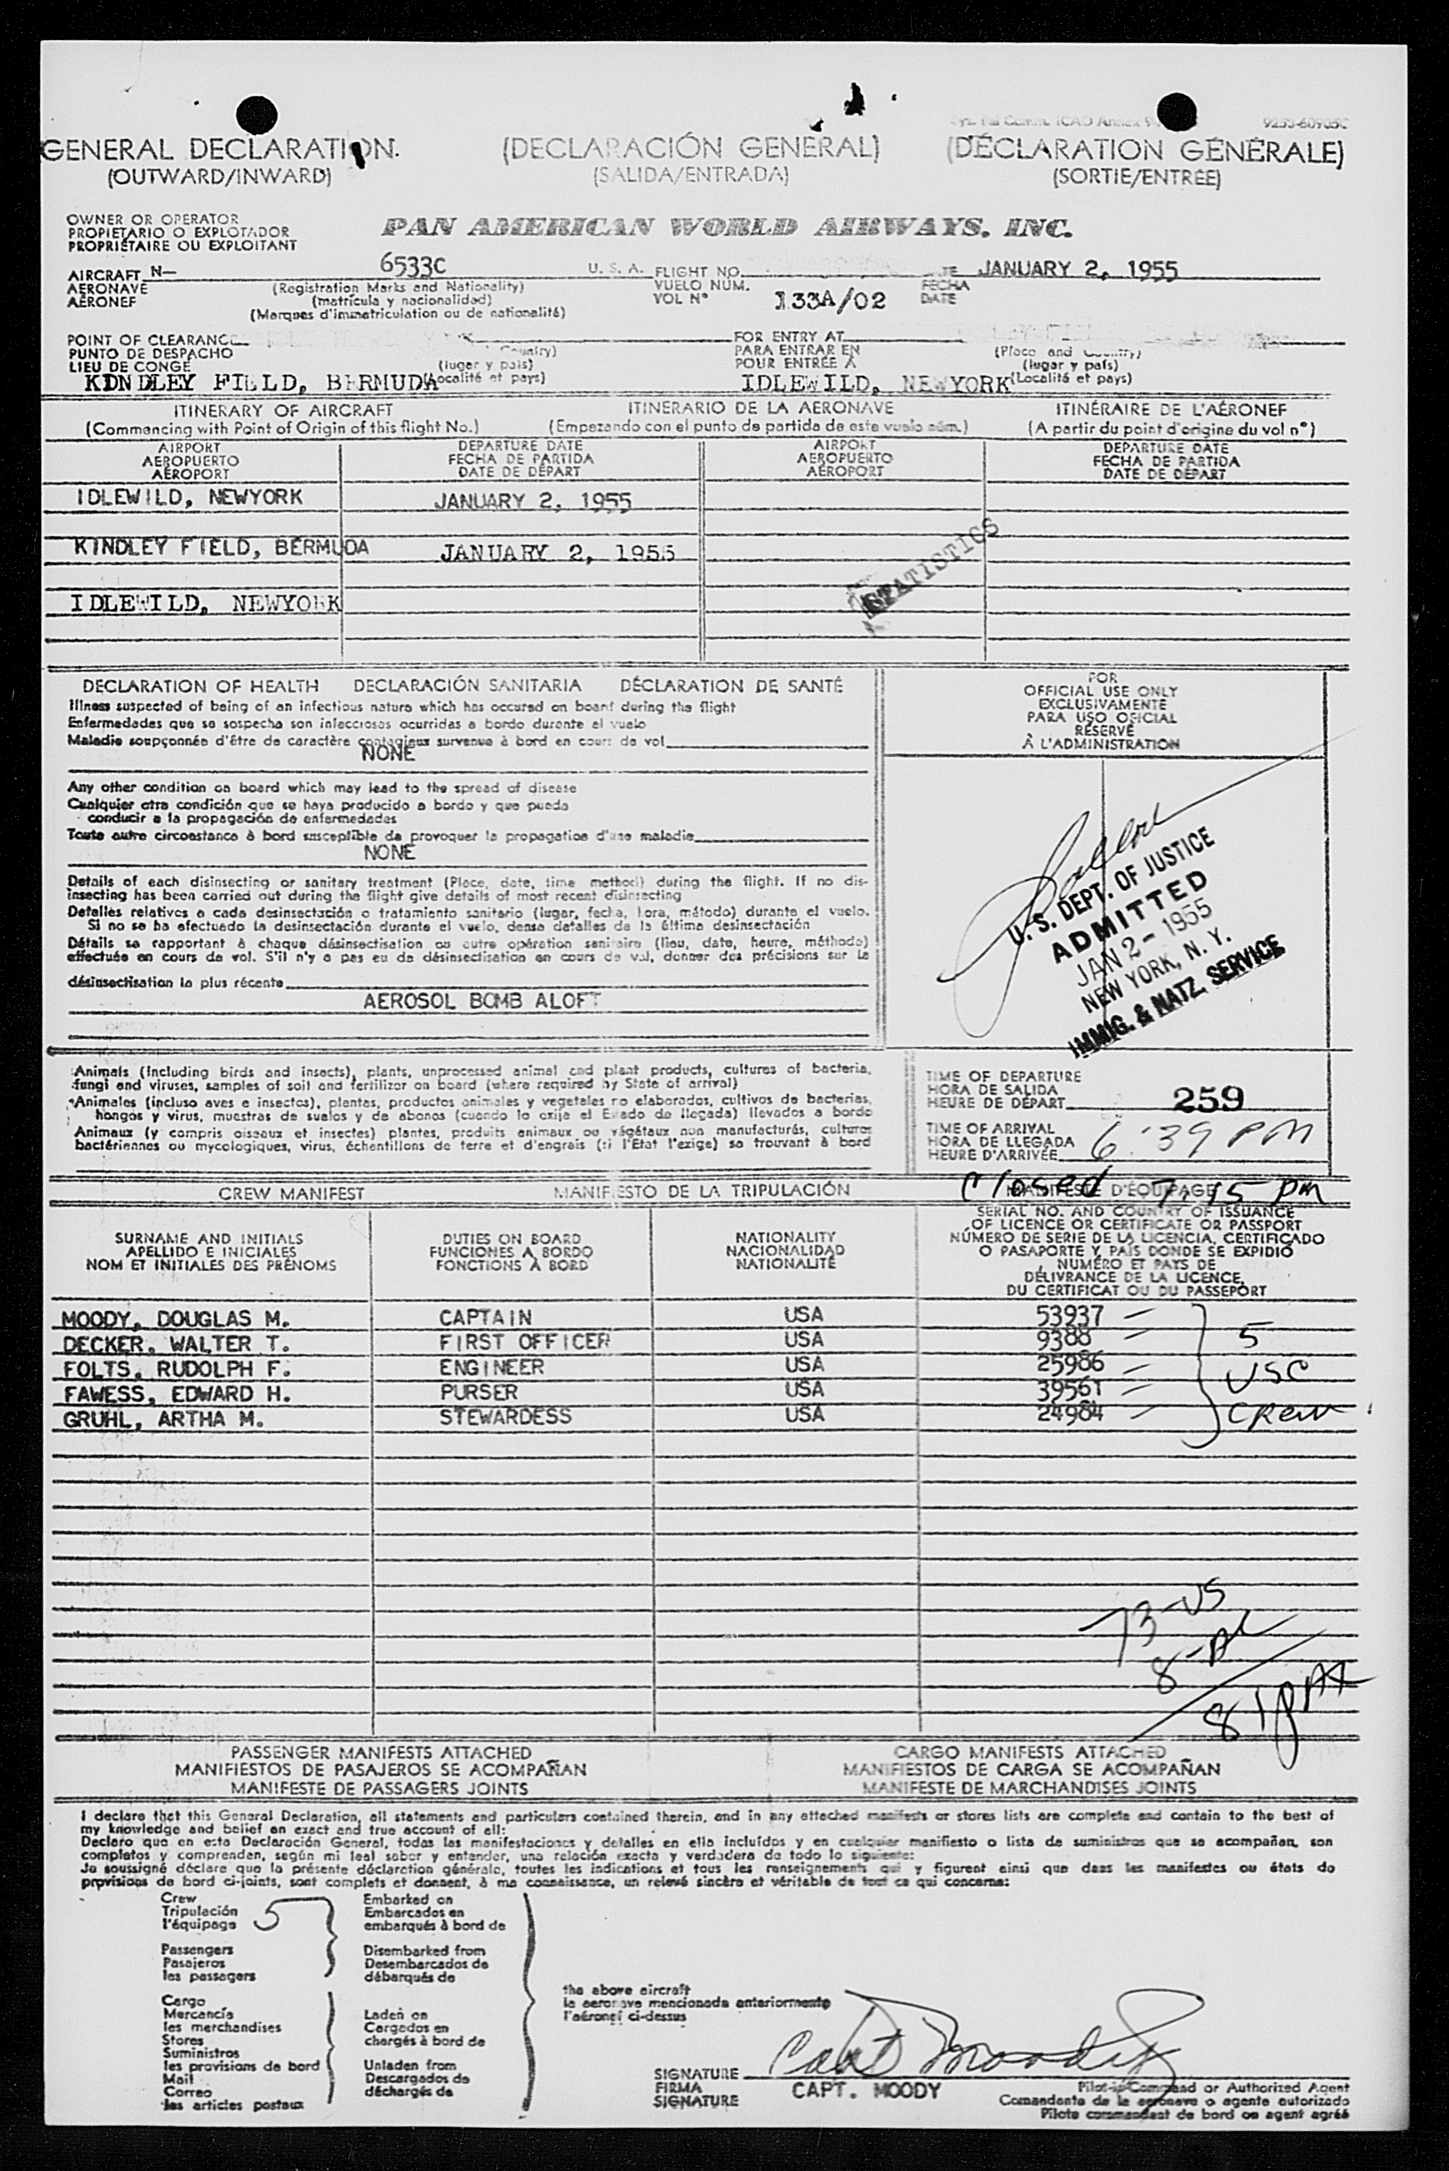 GENERAL DECLARATION. (DECLARACIÓN GENERAL) (DÉCLARATION GÉNÉRALE)
(OUTWARD/INWARD) (SALIDA/ENTRADA) (SORTIE/ENTRÉE)
OWNER OR OPERATOR
PROPIETARIO O EXPLOTADOR
PROPRIÉTAIRE OU EXPLOITANT
PAN AMERICAN WORLD AIRWAYS, INC.
AIRCRAFT N— 6533C U. S. A. FLIGHT NO. JANUARY 2, 1955
AERONAVE (Registration Marks and Nationality) VUELO NUM. 133A/02 FECHA
AÉRONEF (matrícula y nacionalidad) VOL N° DATE
(Marques d'immatriculation ou de nationalité)
POINT OF CLEARANCE FOR ENTRY AT
PUNTO DE DESPACHO Country) PARA ENTRAR EN (Place and Country)
LIEU DE CONGÉ (lugar y país) POUR ENTRÉE À (lugar y país)
KINDLEY FIELD, BERMUDA (Localité et pays) IDLEWILD, NEWYORK (Localité et pays)
ITINERARY OF AIRCRAFT ITINERARIO DE LA AERONAVE ITINÉRAIRE DE L'AÉRONEF
(Commencing with Point of Origin of this flight No.) (Empezando con el punto de partida de este vuelo núm.) (A partir du point d'origine du vol n°)
AIRPORT DEPARTURE DATE AIRPORT DEPARTURE DATE
AEROPUERTO FECHA DE PARTIDA AEROPUERTO FECHA DE PARTIDA
AÉROPORT DATE DE DÉPART AÉROPORT DATE DE DÉPART
IDLEWILD, NEWYORK JANUARY 2, 1955
KINDLEY FIELD, BERMUDA JANUARY 2, 1955
STATISTICS
IDLEWILD, NEWYORK
DECLARATION OF HEALTH DECLARACIÓN SANITARIA DÉCLARATION DE SANTÉ
Illness suspected of being of an infectious nature which has occured on board during the flight
Enfermedades que se sospecha son infecciosas ocurridas a bordo durante el vuelo
Maladie soupçonnée d'être de caractère contagieux survenue à bord en cours de vol
NONE
Any other condition on board which may lead to the spread of disease
Cualquier otra condición que se haya producido a bordo y que pueda
conducir a la propagación de enfermedades
Toute autre circonstance à bord susceptible de provoquer la propagation d'une maladie
NONE
Details of each disinsecting or sanitary treatment (Place, date, time method) during the flight. If no dis-
insecting has been carried out during the flight give details of most recent disinsecting
Detalles relativos a cada desinsectación o tratamiento sanitario (lugar, fecha, hora, método) durante el vuelo.
Si no se ha efectuado la desinsectación durante el vuelo, dense detalles de la última desinsectación
Détails se rapportant à chaque désinsectisation ou autre opération sanitaire (lieu, date, heure, méthode)
effectuée en cours de vol. S'il n'y a pas eu de désinsectisation en cours de vol, donner des précisions sur la
désinsectisation la plus récente
AEROSOL BOMB ALOFT
FOR
OFFICIAL USE ONLY
EXCLUSIVAMENTE
PARA USO OFICIAL
RÉSERVÉ
À L'ADMINISTRATION
U. S. DEPT. OF JUSTICE
ADMITTED
JAN 2 - 1955
NEW YORK, N. Y.
IMMIG. & NATZ. SERVICE
Animals (Including birds and insects), plants, unprocessed animal and plant products, cultures of bacteria,
fungi and viruses, samples of soil and fertilizer on board (where required by State of arrival)
Animales (incluso aves e insectos), plantas, productos animales y vegetales no elaborados, cultivos de bacterias,
hongos y virus, muestras de suelos y de abonos (cuando lo exija el Estado de llegada) llevados a bordo
Animaux (y compris oiseaux et insectes) plantes, produits animaux ou végétaux non manufacturés, cultures
bactériennes ou mycologiques, virus, échantillons de terre et d'engrais (si l'Etat l'exige) se trouvant à bord
TIME OF DEPARTURE
HORA DE SALIDA
HEURE DE DÉPART 259
TIME OF ARRIVAL
HORA DE LLEGADA
HEURE D'ARRIVÉE 6:39 PM
Closed 7:15 pm
CREW MANIFEST MANIFIESTO DE LA TRIPULACIÓN MANIFESTE D'ÉQUIPAGE
SURNAME AND INITIALS
APELLIDO E INICIALES
NOM ET INITIALES DES PRÉNOMS
DUTIES ON BOARD
FUNCIONES A BORDO
FONCTIONS À BORD
NATIONALITY
NACIONALIDAD
NATIONALITÉ
SERIAL NO. AND COUNTRY OF ISSUANCE
OF LICENCE OR CERTIFICATE OR PASSPORT
NÚMERO DE SERIE DE LA LICENCIA, CERTIFICADO
O PASAPORTE Y PAÍS DONDE SE EXPIDIÓ
NUMÉRO ET PAYS DE
DÉLIVRANCE DE LA LICENCE,
DU CERTIFICAT OU DU PASSEPORT
MOODY, DOUGLAS M. CAPTAIN USA 53937
DECKER, WALTER T. FIRST OFFICER USA 9388 5
FOLTS, RUDOLPH F. ENGINEER USA 25986 USC
FAWESS, EDWARD H. PURSER USA 39561
GRUHL, ARTHA M. STEWARDESS USA 24984 CREW
73-US
8-AL
81 PAX
PASSENGER MANIFESTS ATTACHED CARGO MANIFESTS ATTACHED
MANIFIESTOS DE PASAJEROS SE ACOMPAÑAN MANIFIESTOS DE CARGA SE ACOMPAÑAN
MANIFESTE DE PASSAGERS JOINTS MANIFESTE DE MARCHANDISES JOINTS
I declare that this General Declaration, all statements and particulars contained therein, and in any attached manifests or stores lists are complete and contain to the best of
my knowledge and belief an exact and true account of all:
Declaro que en esta Declaración General, todas las manifestaciones y detalles en ella incluídos y en cualquier manifiesto o lista de suministros que se acompañan, son
completos y comprenden, según mi leal saber y entender, una relación exacta y verdadera de todo lo siguiente:
Je soussigné déclare que la présente déclaration générale, toutes les indications et tous les renseignements qui y figurent ainsi que dans les manifestes ou états de
provisions de bord ci-joints, sont complets et donnent, à ma connaissance, un relevé sincère et véritable de tout ce qui concerne:
Crew
Tripulación
l'équipage 5
Passengers
Pasajeros
les passagers
Cargo
Mercancía
les merchandises
Stores
Suministros
les provisions de bord
Mail
Correo
les articles postaux
Embarked on
Embarcados en
embarqués à bord de
Disembarked from
Desembarcados de
débarqués de
Laden on
Cargados en
chargés à bord de
Unladen from
Descargados de
déchargés de
the above aircraft
la aeronave mencionada anteriormente
l'aéronef ci-dessus
SIGNATURE Capt Moody
FIRMA CAPT. MOODY
SIGNATURE
Pilot-in-Command or Authorized Agent
Comandante de la aeronave o agente autorizado
Pilote commandant de bord ou agent agréé